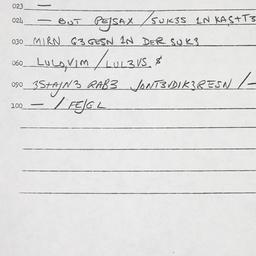 023 —
024 — BUT PEJSAX / SUKES IN KASTTE
030 MIRN GEGESN IN DER SUKE
060 LULOVIM / LULEVS. $
090 ESTAJNE RABE JONTEVDIKERESN / —
100 — / FEJGL